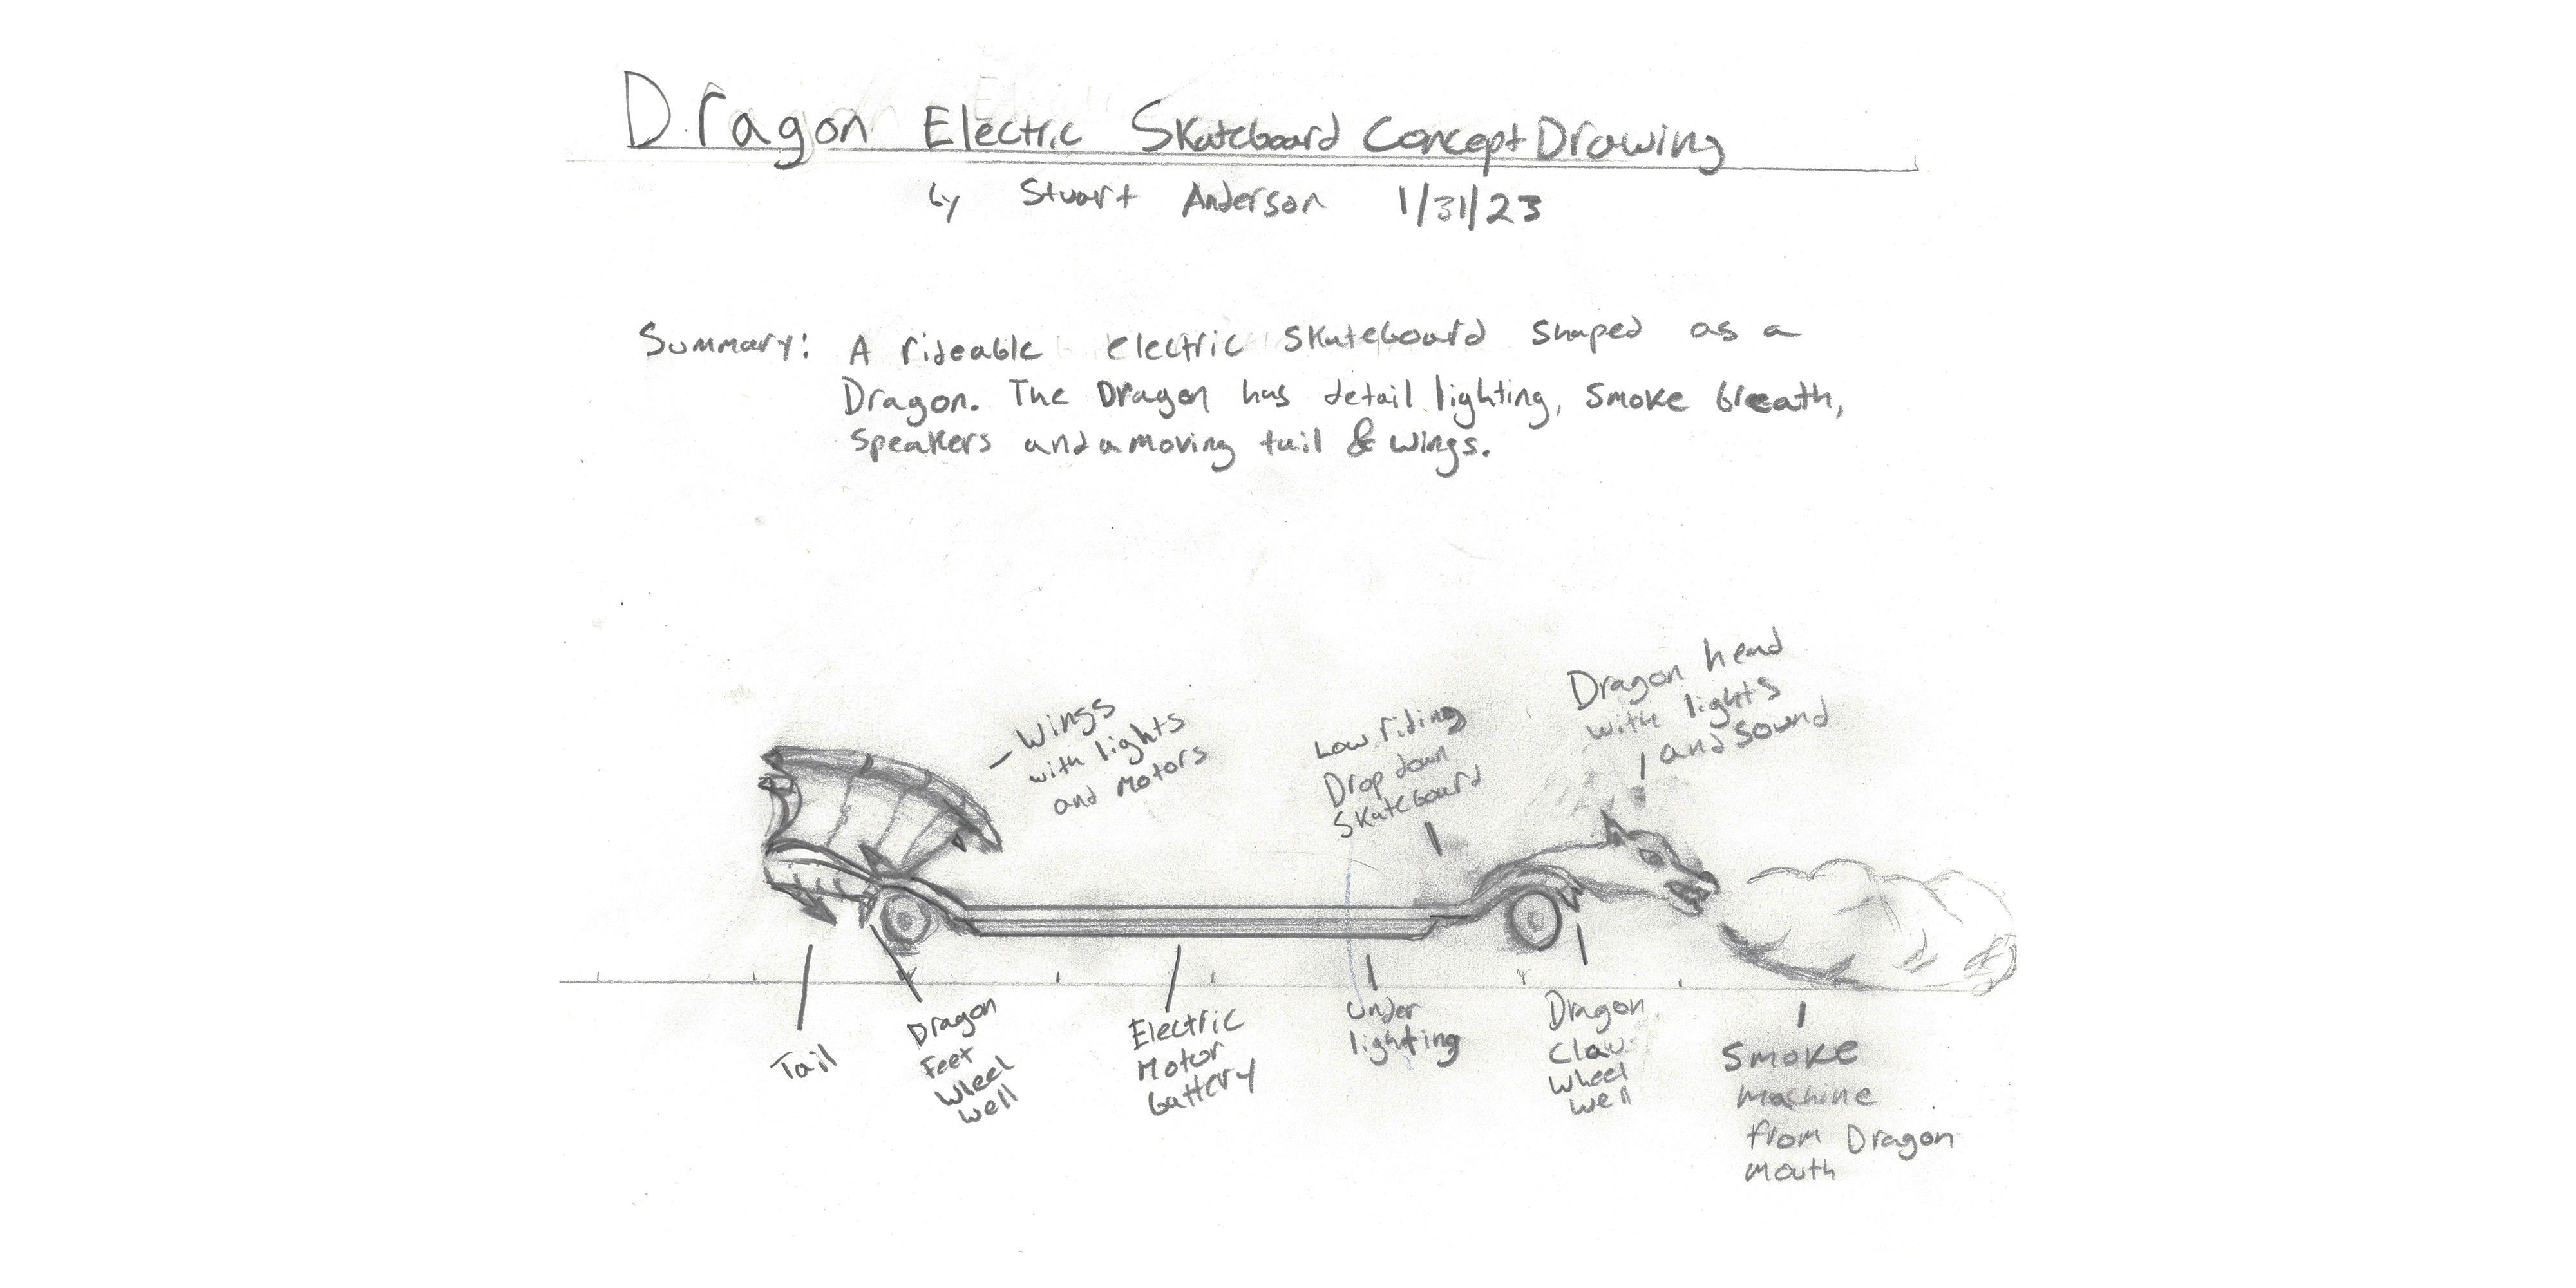 Dragon Electric Skateboard Concept Drawing
by Stuart Anderson 1/31/23
Summary: A rideable electric skateboard shaped as a
Dragon. The Dragon has detail lighting, smoke breath,
speakers and a moving tail & wings.
Wings
with lights
and motors
Low riding
Drop down
skateboard
Dragon head
with lights
and sound
Tail
Dragon
Feet
Wheel
well
Electric
Motor
battery
Under
lighting
Dragon
Claw
Wheel
well
Smoke
machine
from Dragon
mouth